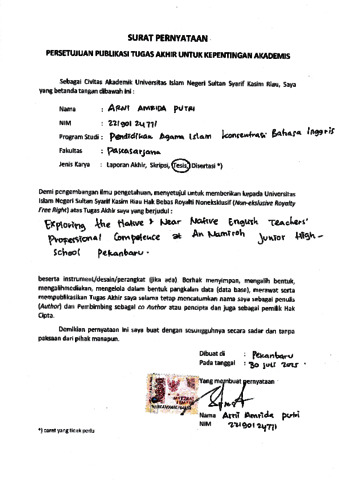 SURAT PERNYATAAN
PERSETUJUAN PUBLIKASI TUGAS AKHIR UNTUK KEPENTINGAN AKADEMIS
Sebagai Civitas Akademik Universitas Islam Negeri Sultan Syarif Kasim Riau, Saya
yang betanda tangan dibawah ini :
Nama : ARNI AMRIDA PUTRI
NIM : 22190124771
Program Studi : Pendidikan Agama Islam Konsentrasi Bahasa Inggris
Fakultas : Pascasarjana
Jenis Karya : Laporan Akhir, Skripsi, Tesis, Disertasi *)
Demi pengembangan ilmu pengetahuan, menyetujui untuk memberikan kepada Universitas
Islam Negeri Sultan Syarif Kasim Riau Hak Bebas Royalti Noneksklusif (Non-eksklusive Royalty
Free Right) atas Tugas Akhir saya yang berjudul :
Exploring the Native & Near Native English Teachers'
Professional Competence at An Namiroh Junior High-
School Pekanbaru.
beserta instrument/desain/perangkat (jika ada) Berhak menyimpan, mengalih bentuk,
mengalihmediakan, mengelola dalam bentuk pangkalan data (data base), merawat serta
mempublikasikan Tugas Akhir saya selama tetap mencatumkan nama saya sebagai penulis
(Author) dan Pembimbing sebagai co Author atau pencipta dan juga sebagai pemilik Hak
Cipta.
Demikian pernyataan ini saya buat dengan sesungguhnya secara sadar dan tanpa
paksaan dari pihak manapun.
Dibuat di : Pekanbaru
Pada tanggal : 30 Juli 2025
Yang membuat pernyataan
Nama Arni Amrida Putri
NIM 22190124771
*) coret yang tidak perlu